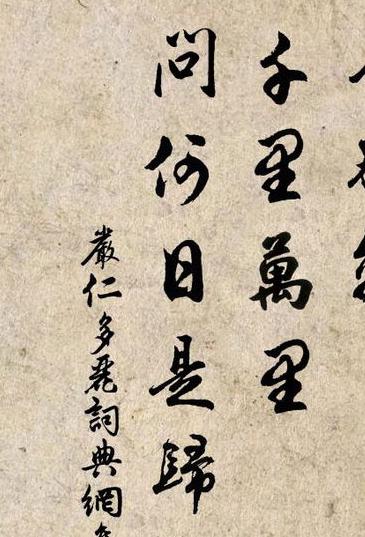 千里萬里
問何日是歸
嚴仁多麗詞典網